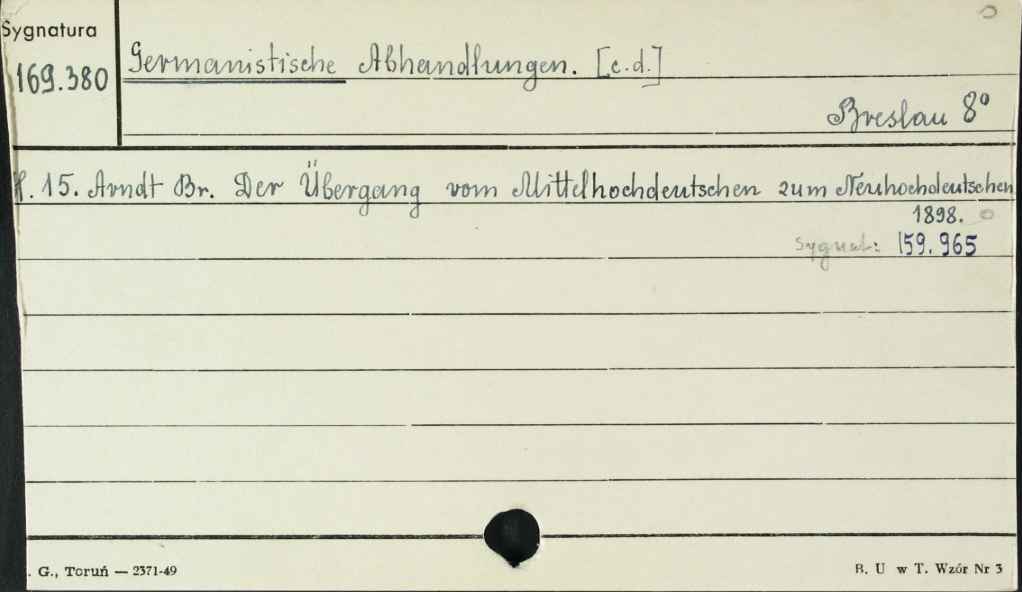 Sygnatura
169.380
Germanistische Abhandlungen. [c.d.]
Breslau 8°
H. 15. Arndt Br. Der Übergang vom Mittelhochdeutschen zum Neuhochdeutschen
1898.
Sygnat: 159.965
. G., Toruń — 2371-49
B. U w T. Wzór Nr 3